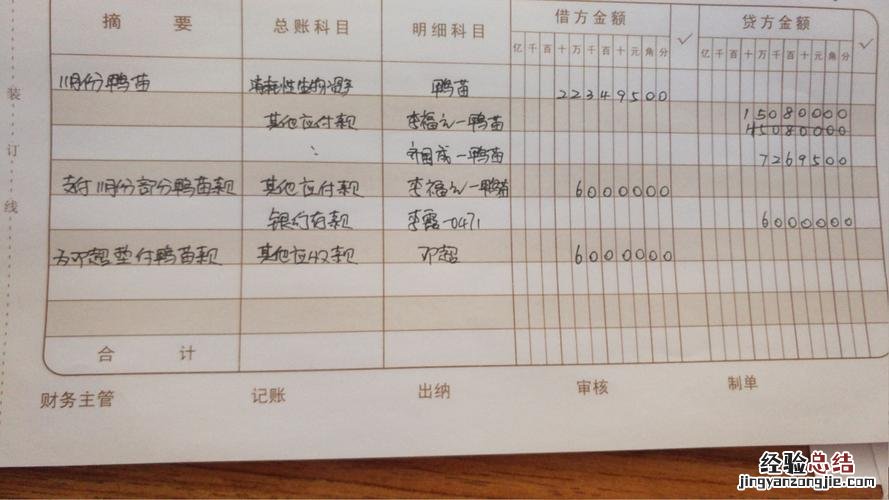 摘 要 总账科目 明细科目 借方金额 ✓ 贷方金额 ✓
亿千百十万千百十元角分 亿千百十万千百十元角分
11月份鸭苗 消耗性生物 鸭苗 22349500
其他应付款 李福元一鸭苗 15080000
15080000
一鸭苗 7269500
支付11月份部分鸭苗款 其他应付款 李福元一鸭苗 6000000
银行存款 李霞-0471 6000000
为邓超垫付鸭苗款 其他应收款 邓超 6000000
合 计
财务主管 记账 出纳 审核 制单
装
订
线
经验总结
jingyanzongjie.com